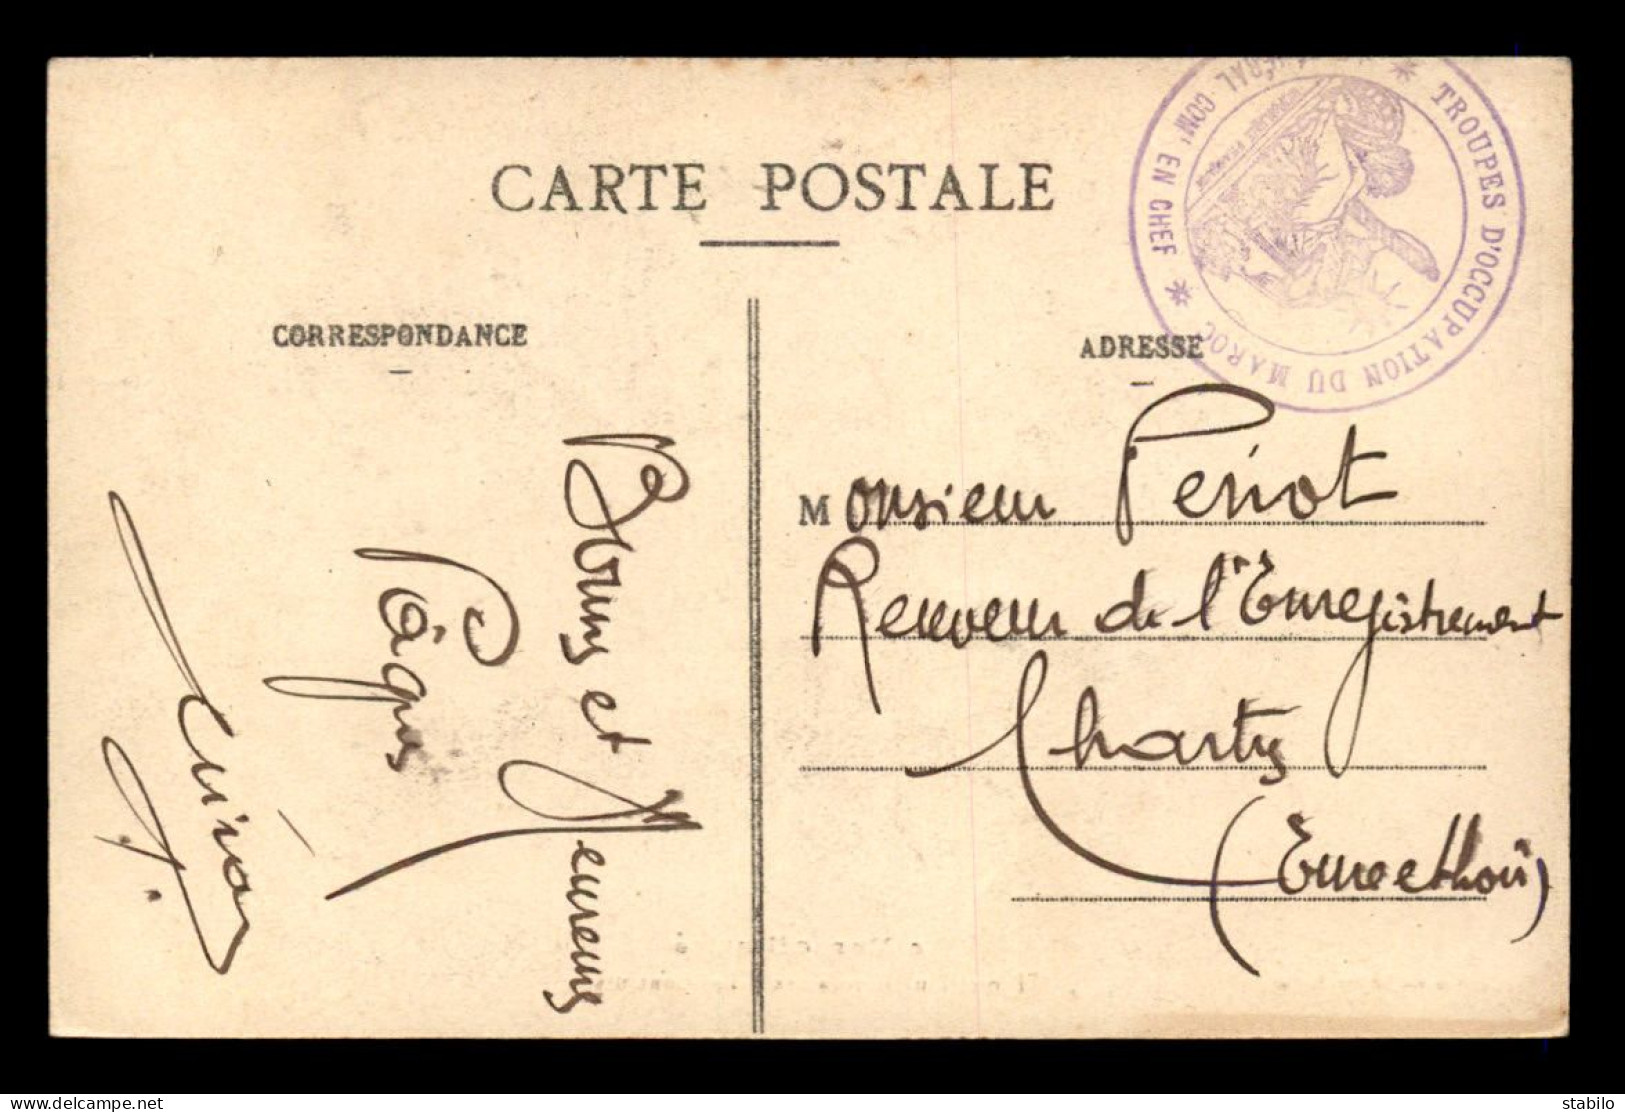 CARTE POSTALE
CORRESPONDANCE
ADRESSE
TROUPES D'OCCUPATION DU MAROC
GÉNÉRAL COMT EN CHEF
RÉPUBLIQUE FRANÇAISE
Bonnes et Heureuses
Pâques
Monsieur Periot
Receveur de l'Enregistrement
Chartres
(Eure et Loir)
delcampe.net
stabilo